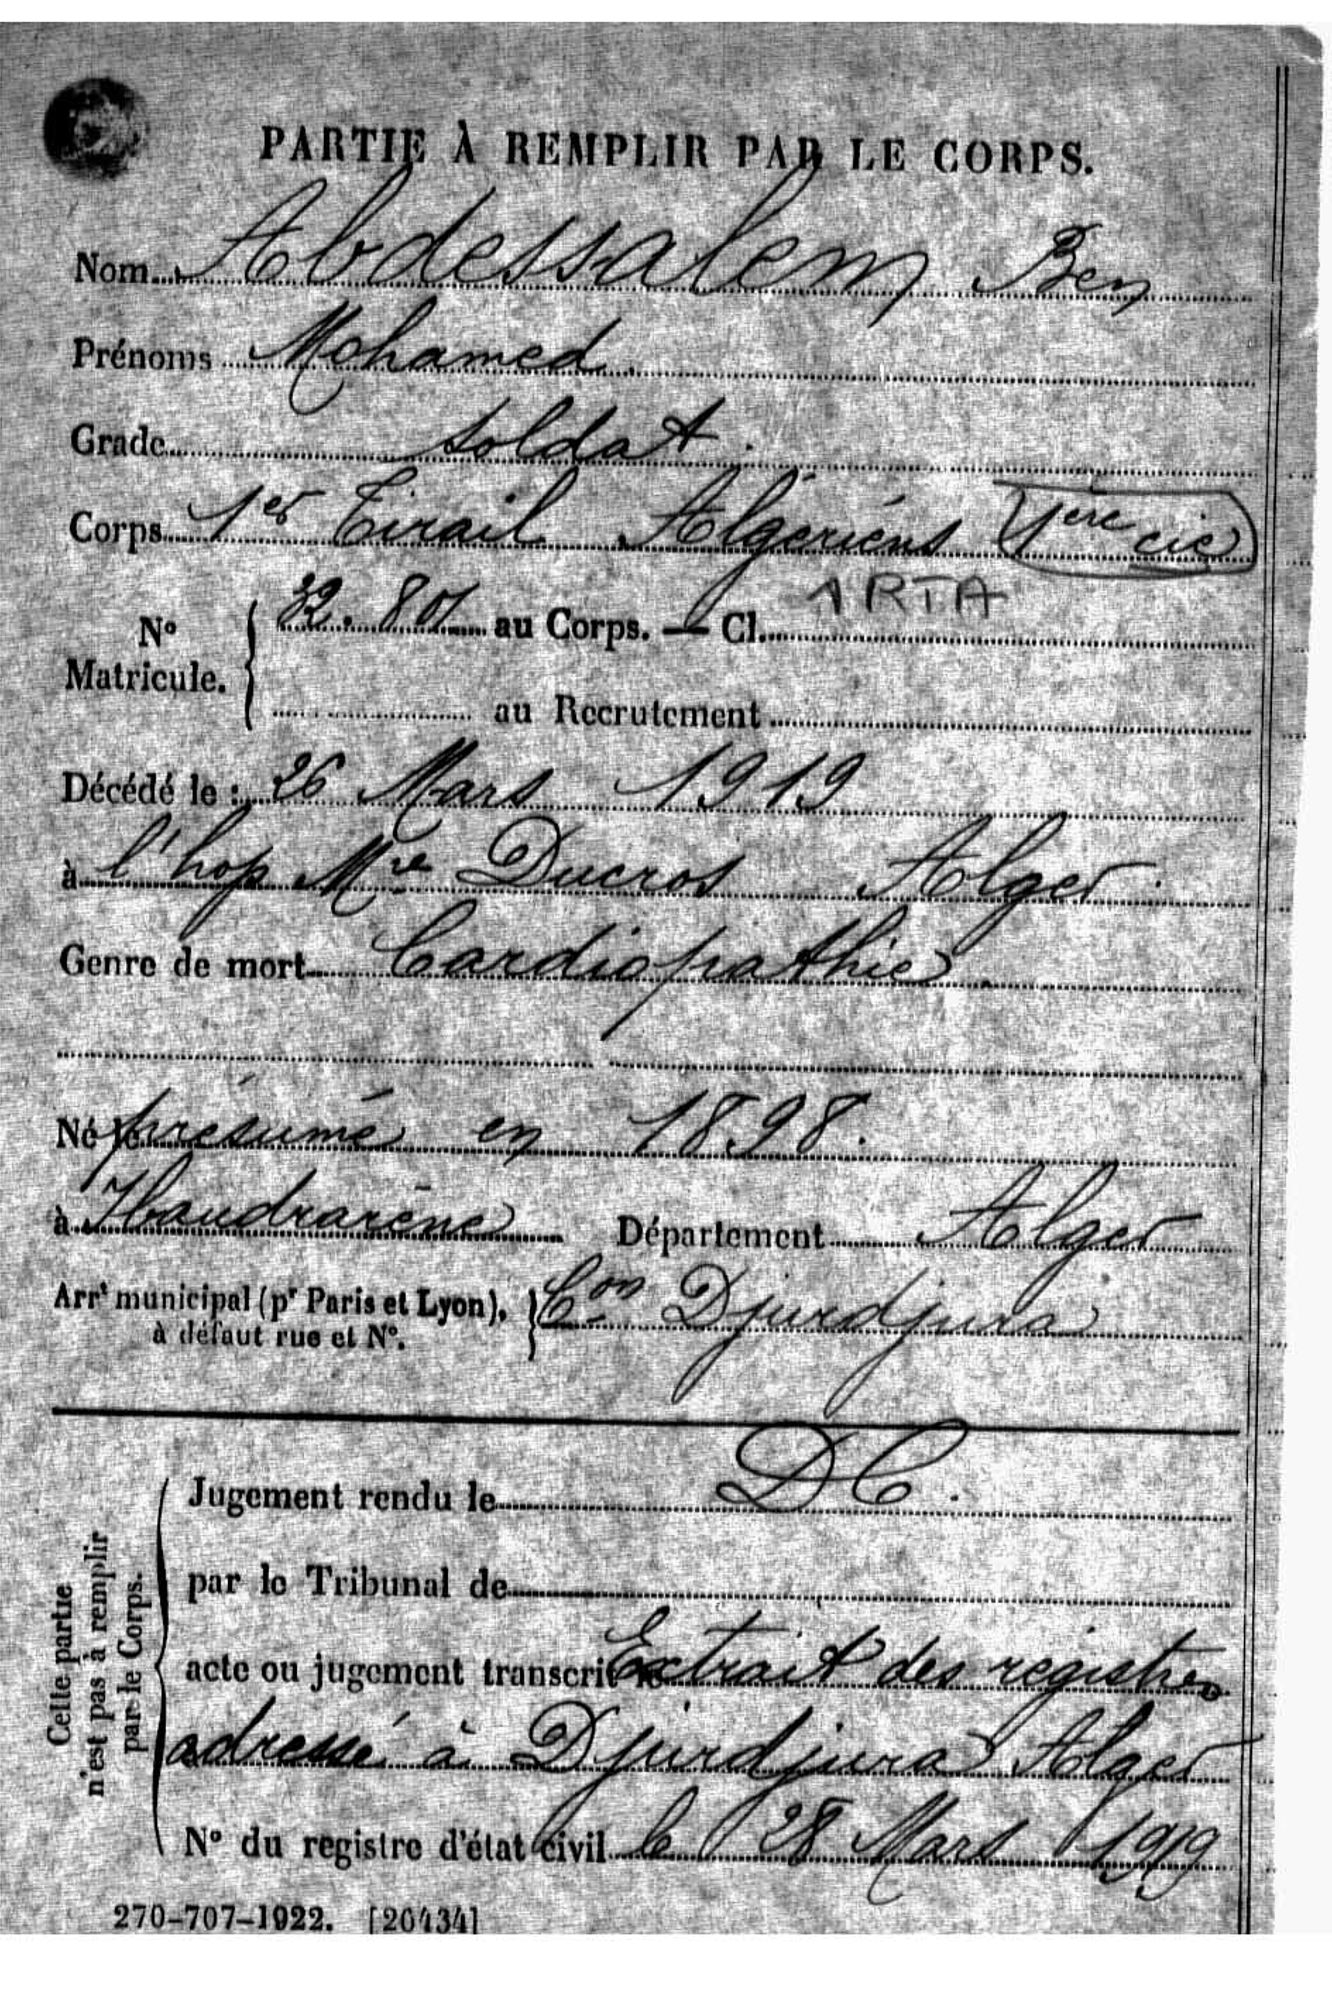 PARTIE À REMPLIR PAR LE CORPS.
Nom Abdessalem Ben
Prénoms Mohamed
Grade soldat.
Corps 1er Tirail Algériens 1ère cie
1 RTA
N° Matricule. 32.801 au Corps. — Cl.
au Recrutement
Décédé le : 26 Mars 1919
à l'hop Mre Ducros Alger.
Genre de mort Cardiopathie.
Né le présumé en 1898.
à Département Alger
Arrt municipal (pr Paris et Lyon), Con Djurdjura
à défaut rue et N°.
Cette partie n'est pas à remplir par le Corps.
Jugement rendu le DC.
par le Tribunal de
acte ou jugement transcrit le Extrait des registres
adressé à Djurdjura Alger
N° du registre d'état civil le 28 Mars 1919
270-707-1922. [20434]